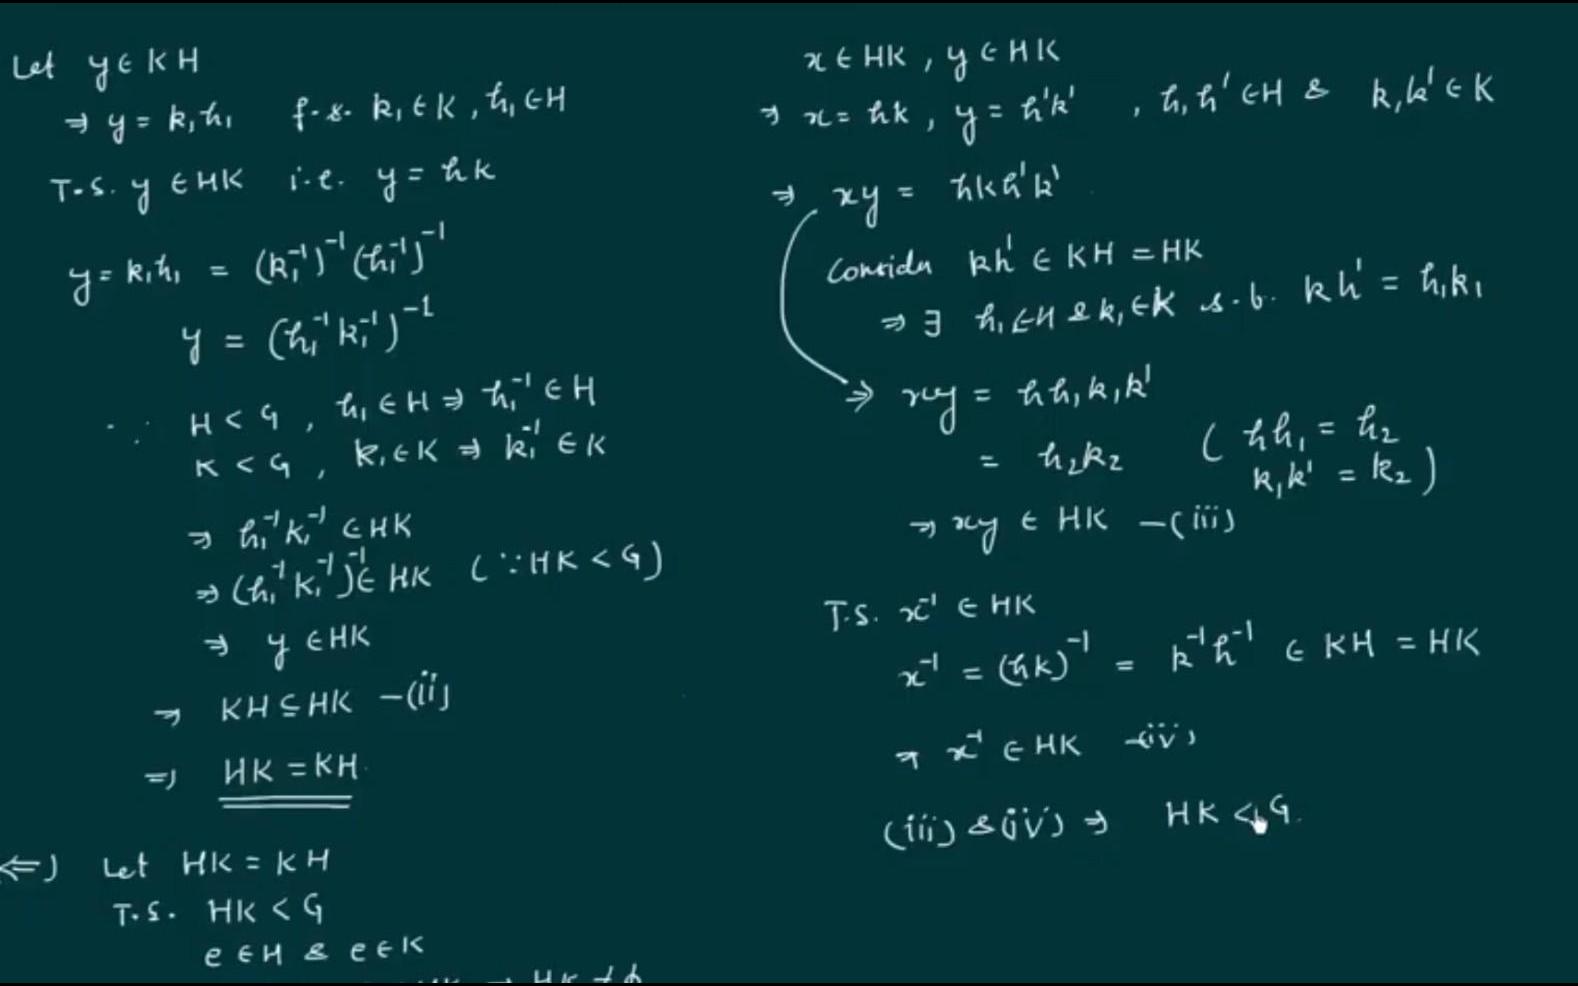 Let y ∈ KH
⇒ y = k₁h₁ f.s. k₁ ∈ K, h₁ ∈ H
T.S. y ∈ HK i.e. y = hk
y = k₁h₁ = (k₁⁻¹)⁻¹(h₁⁻¹)⁻¹
y = (h₁⁻¹k₁⁻¹)⁻¹
∵ H < G, h₁ ∈ H ⇒ h₁⁻¹ ∈ H
K < G, k₁ ∈ K ⇒ k₁⁻¹ ∈ K
⇒ h₁⁻¹k₁⁻¹ ∈ HK
⇒ (h₁⁻¹k₁⁻¹)⁻¹ ∈ HK (∵ HK < G)
⇒ y ∈ HK
⇒ KH ⊆ HK –(ii)
⇒ HK = KH
⇐) Let HK = KH
T.S. HK < G
e ∈ H & e ∈ K
HK ≠ φ
x ∈ HK, y ∈ HK
⇒ x = hk, y = h'k', h, h' ∈ H & k, k' ∈ K
⇒ xy = hkh'k'
Consider kh' ∈ KH = HK
⇒ ∃ h₁ ∈ H & k₁ ∈ K s.t. kh' = h₁k₁
⇒ xy = hh₁k₁k'
= h₂k₂ (hh₁ = h₂
k₁k' = k₂)
⇒ xy ∈ HK –(iii)
T.S. x⁻¹ ∈ HK
x⁻¹ = (hk)⁻¹ = k⁻¹h⁻¹ ∈ KH = HK
⇒ x⁻¹ ∈ HK –(iv)
(iii) & (iv) ⇒ HK < G.